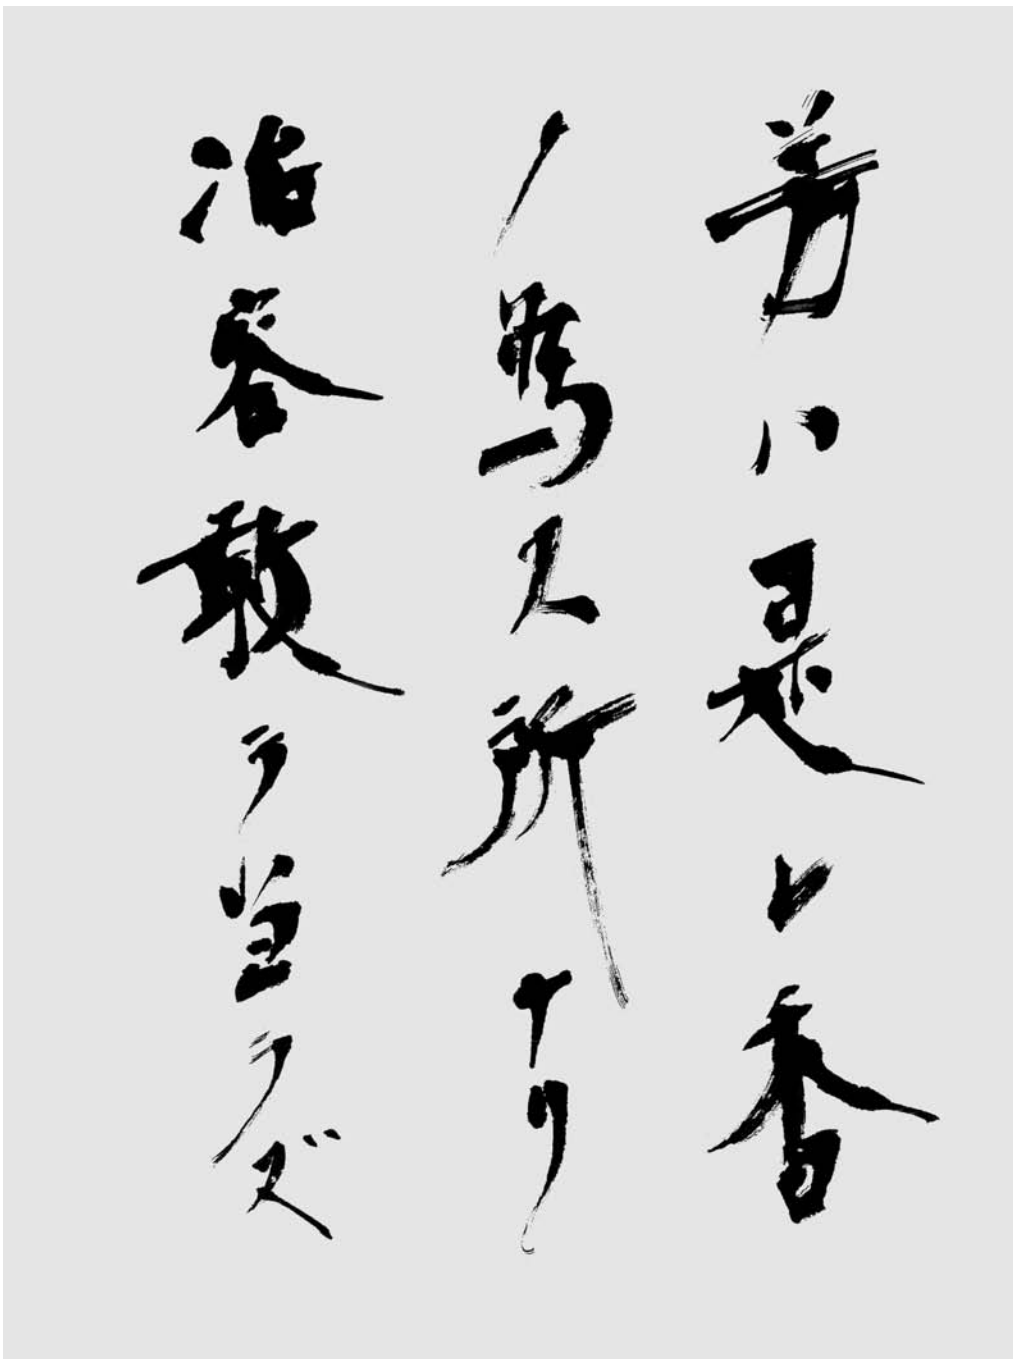 芳ハ是レ香
ノ為ス所ナリ
冶容敢ヲ当ラズ